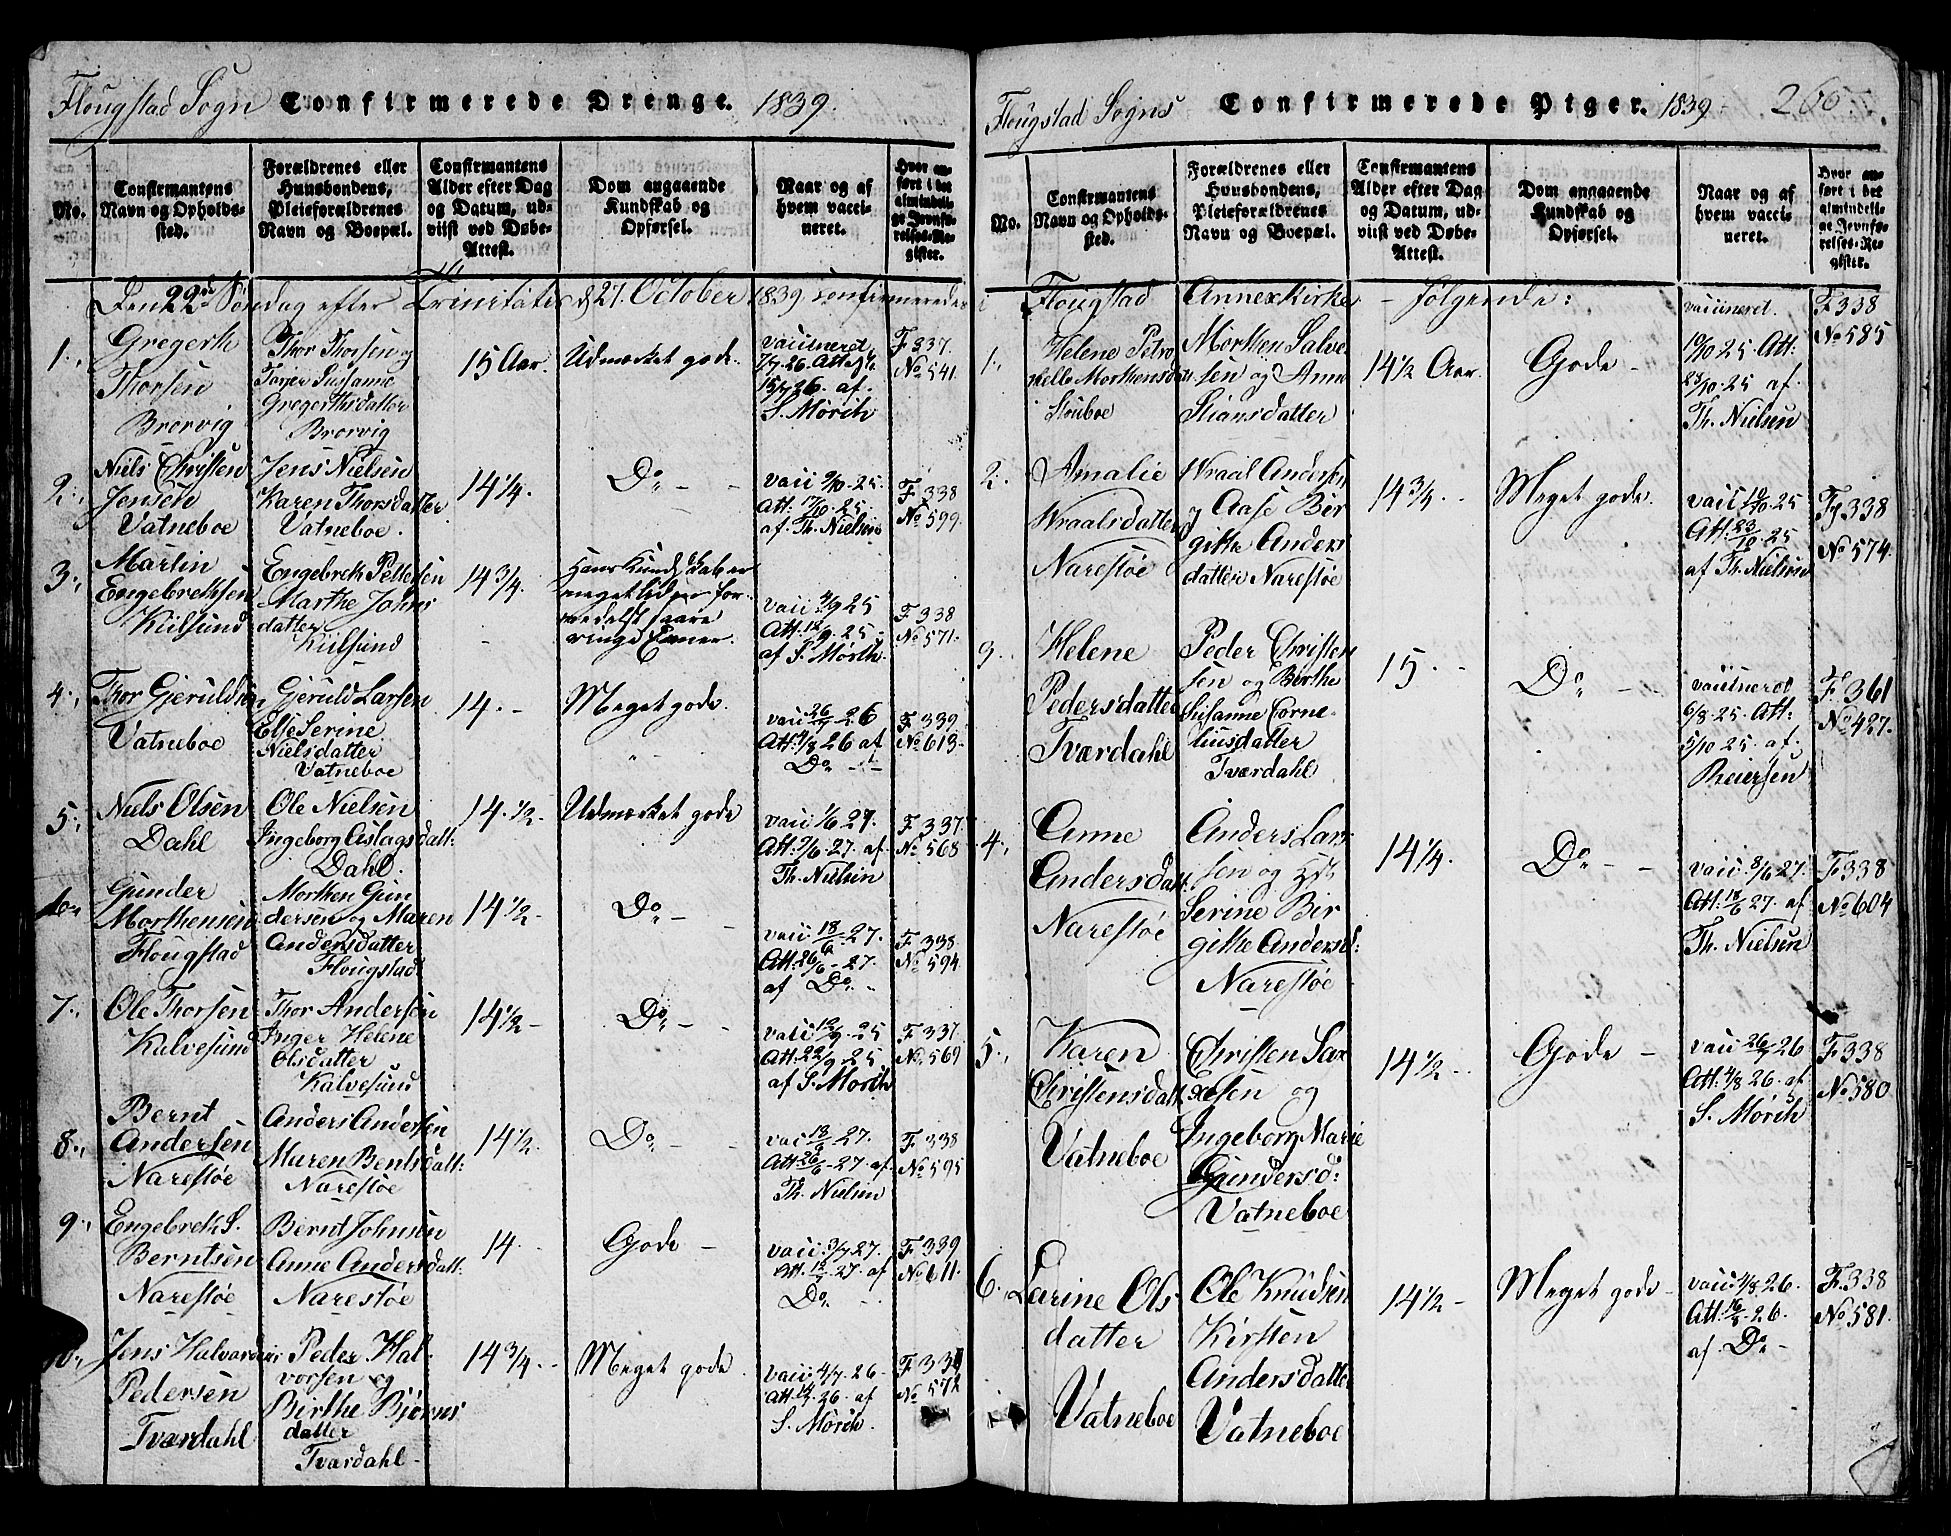 Flougstad Sogn Confirmerede Drenge. 1839.
No.
Confirmantens Navn og Opholds-sted.
Forældrenes eller Huusbondens, Pleieforældrenes Navn og Boepæl.
Confirmantens Alder efter Dag og Datum, ud-viist ved Døbe-Attest.
Dom angaaende Kundskab og Opførsel.
Naar og af hvem vacci-neret.
Hvor an-ført i det almindeli-ge Jevnfø-relses-Re-gister.
Den 22de Søndag efter Trinitatis d 27. October 1839 confirmerede
1.
Gregerth
Thorsen
Brorvig
Thor Thorsen og
Tarjer Susanne
Gregerthsdatter
Brorvig
15 Aar.
Udmærket gode.
vaccineret
7/7 26. Att:
15/7 26. af
S. Mørch
F 337.
No 541.
2.
Niels Christen
Jensen
Vatneboe
Jens Nielsen
Karen Thorsdatter
Vatneboe.
14 1/4.
Do - -
vacc 9/10. 25.
Att: 17/10. 25.
af Th. Nielsen
F 338
No 599.
3.
Martin
Engebrethsen
Kiilsund
Engebreth Pettersen
Marthe Johns
datter
Kiilsund
14 3/4.
Hans Kundskab er
meget liden for-
medelst saare
ringe Evner.
vacc 4/9 25
Att: 12/9. 25
af S. Mørch.
F 338
No 571.
4.
Thor Gjeruldsen
Vatneboe
Gjeruld Larsen
Else Serine
Nielsdatter
Vatneboe
14. -
Meget gode.
vacc 26/7 26
Att: 4/8 26 af
Do
F. 339.
No 613.
5.
Niels Olsen
Dahl
Ole Nielsen
Ingeborg Aslagsdatt:
Dahl.
14. 1/2.
Udmærket gode
vacc 1/6 27.
Att: 7/6. 27. af
Th. Nielsen
F 337.
No 568
6.
Gunder
Morthensen
Flougstad
Morthen Gun
dersen og Maren
Andersdatter
Flougstad
14 1/2.
Do -
vacc 18/6 27.
Att: 26/6 - 27.
af Do.
F. 338.
No 594.
7.
Ole Thorsen
Kalvesund
Thor Andersen
Inger Helene
Olsdatter
Kalvesund
14 1/2 -
Do - -
vacc 12/9. 25
Att: 22/9 25
af S. Mørch
F 337.
No. 569
8.
Bernt
Andersen
Narestøe
Anders Andersen
Maren Bentsdatt:
Narestøe
14 1/2.
Do - -
vac 18/6 27.
Att: 26/6 - 27. af
Th. Nielsen
F. 338
No 595
9.
Engebreth S.
Berntsen
Narestøe
Bernt Johnsen
Anne Andersdatt:
Narestøe
14.
Gode -
vacc 3/7 27.
Att. 12/7 27. af
Do.
F 339
No 611.
10.
Jens Halvard
Pedersen
Tværdahl
Peder Hal-
vorsen og
Birthe Bjørns
datter
Tværdahl -
14 3/4. -
Meget gode
vacc 4/7. 26.
Att: 14/7. 26. af
S. Mørch.
F. 338
No 572
Flougstad Sogns Confirmerede Piger. 1839. 266
No.
Confirmantens Navn og Opholds-sted.
Forældrenes eller Huusbondens, Pleieforældrenes Navn og Boepæl.
Confirmantens Alder efter Dag og Datum, ud-viist ved Døbe-Attest.
Dom angaaende Kundskab og Opførsel.
Naar og af hvem vacci-neret.
Hvor an-ført i det almindeli-ge Jevnfø-relses-Re-gister.
i Flougstad Annex Kirke - følgende:
1.
Helene Petro
nelle Morthensdatt
Stouboe
Morthen Salve
sen og Anne
Stiansdatter
14 1/2 Aar.
Gode -
vaccineret.
10/10 25. Att:
23/10. 25 af.
Th. Nielsen
F 338
No 585
2.
Amalie
Wraalsdatter
Narestøe
Wraal Andersen
og Aase Bir
githe Anders
datter Narestøe
14 3/4. -
Meget gode.
vacc 10/10. 25
Att: 23/10. 25
af Th. Nielsen
F. 338
No 574.
3.
Helene
Pedersdatter
Tværdahl
Peder Christen
sen og Birthe
Susanne Corne-
liusdatter
Tværdahl
15. -
Do -
vaccineret
6/8. 25. Att:
5/10 25. af
Reiersen
F. 361
No 427.
4.
Anne
Andersdatt:
Narestøe
Anders Lar
sen og
Serine Bir
githe Andersd:
Narestøe
14 1/4.
Do -
vacc 8/6 27.
Att: 18/6 27. af
Th. Nielsen
F. 338
No 604
5.
Karen
Christensdatt
Vatneboe
Christen Sax
esen og
Ingeborg Marie
Gundersd:
Vatneboe
14 1/2 -
Gode -
vacc 26/7 26
Att: 4/8 26. af
S. Mørch
F. 338
No 580
6.
Larine Ols
datter
Vatneboe
Ole Knudsen
Kirsten
Andersdatter
Vatneboe
14 1/2 -
Meget gode -
vacc 4/8. 26.
Att: 16/8. 26.
af Do -
F. 338
No 581.